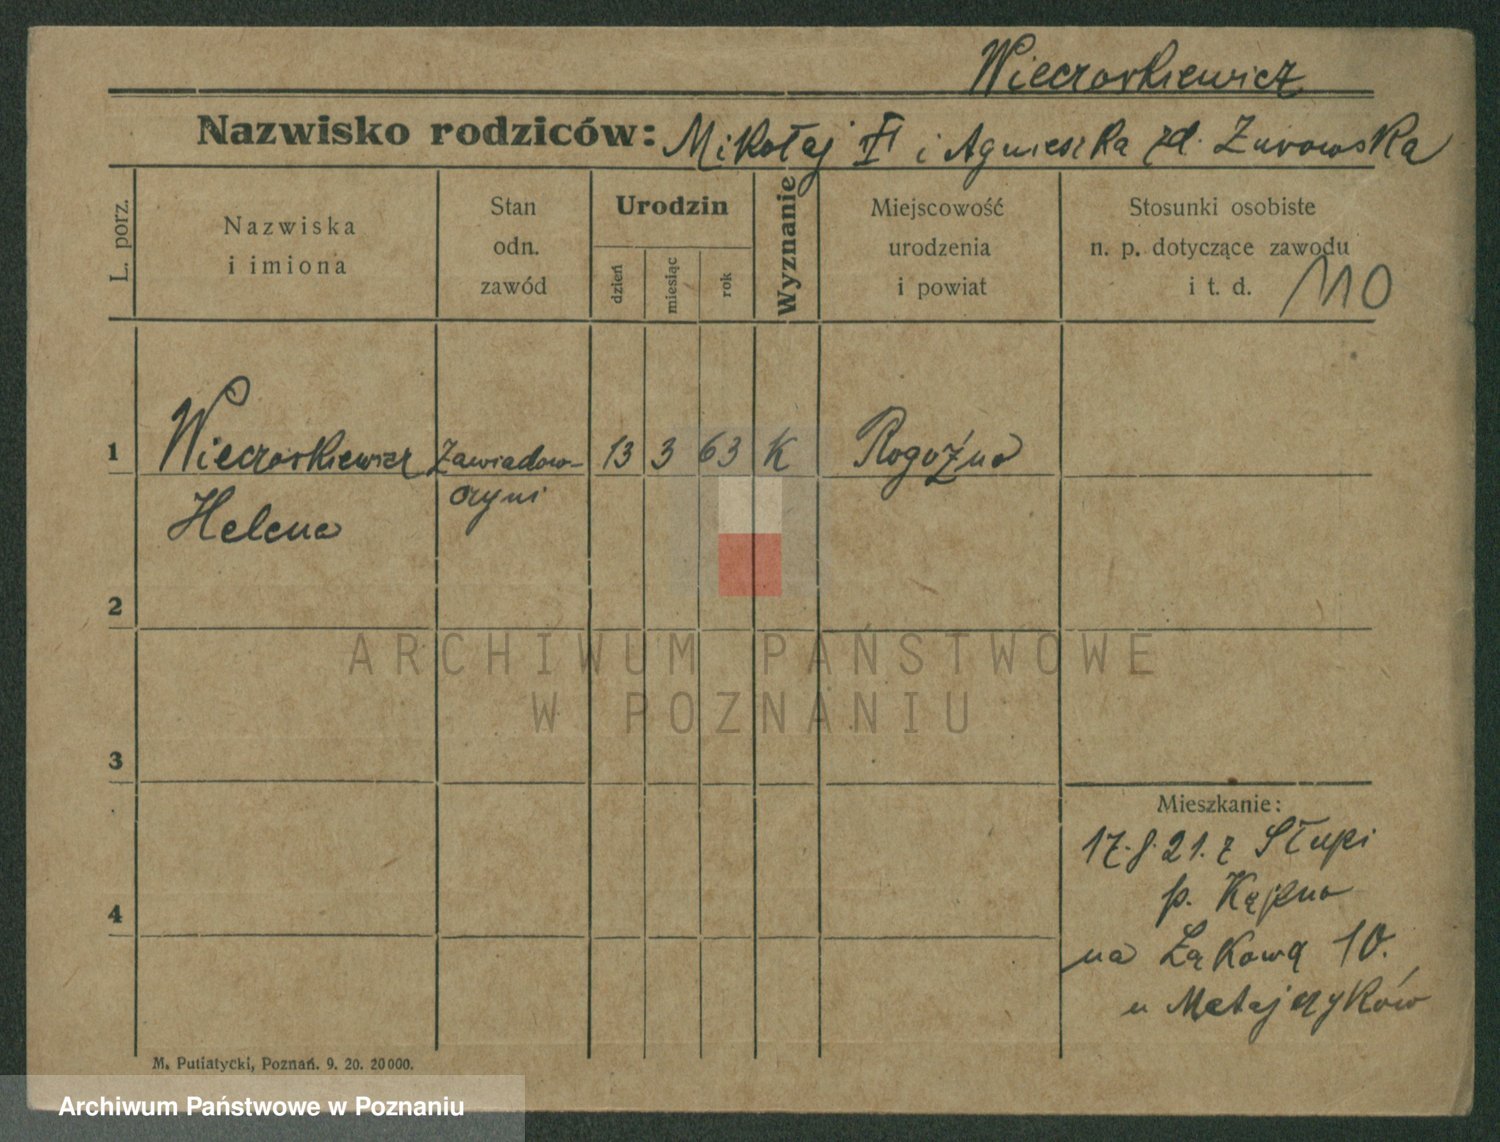 Wieczorkiewicz
Nazwisko rodziców: Mikołaj † i Agnieszka zd. Żurowska
L. porz.
Nazwiska
i imiona
Stan
odn.
zawód
Urodzin
dzień
miesiąc
rok
Wyznanie
Miejscowość
urodzenia
i powiat
Stosunki osobiste
n. p. dotyczące zawodu
i t. d.
110
1
Wieczorkiewicz
Zawiadow-
13 3 63 K
Rogoźno
Helena
czyni
2
3
4
Mieszkanie:
17.8.21. z Słupi
p. Kępno
na Łąkową 10.
u
M. Putiatycki, Poznań. 9. 20. 20000.
ARCHIWUM PAŃSTWOWE
W POZNANIU
Archiwum Państwowe w Poznaniu